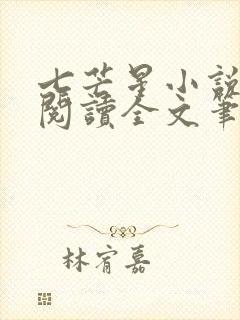 七芒星小說
閱讀全文筆
林宥嘉